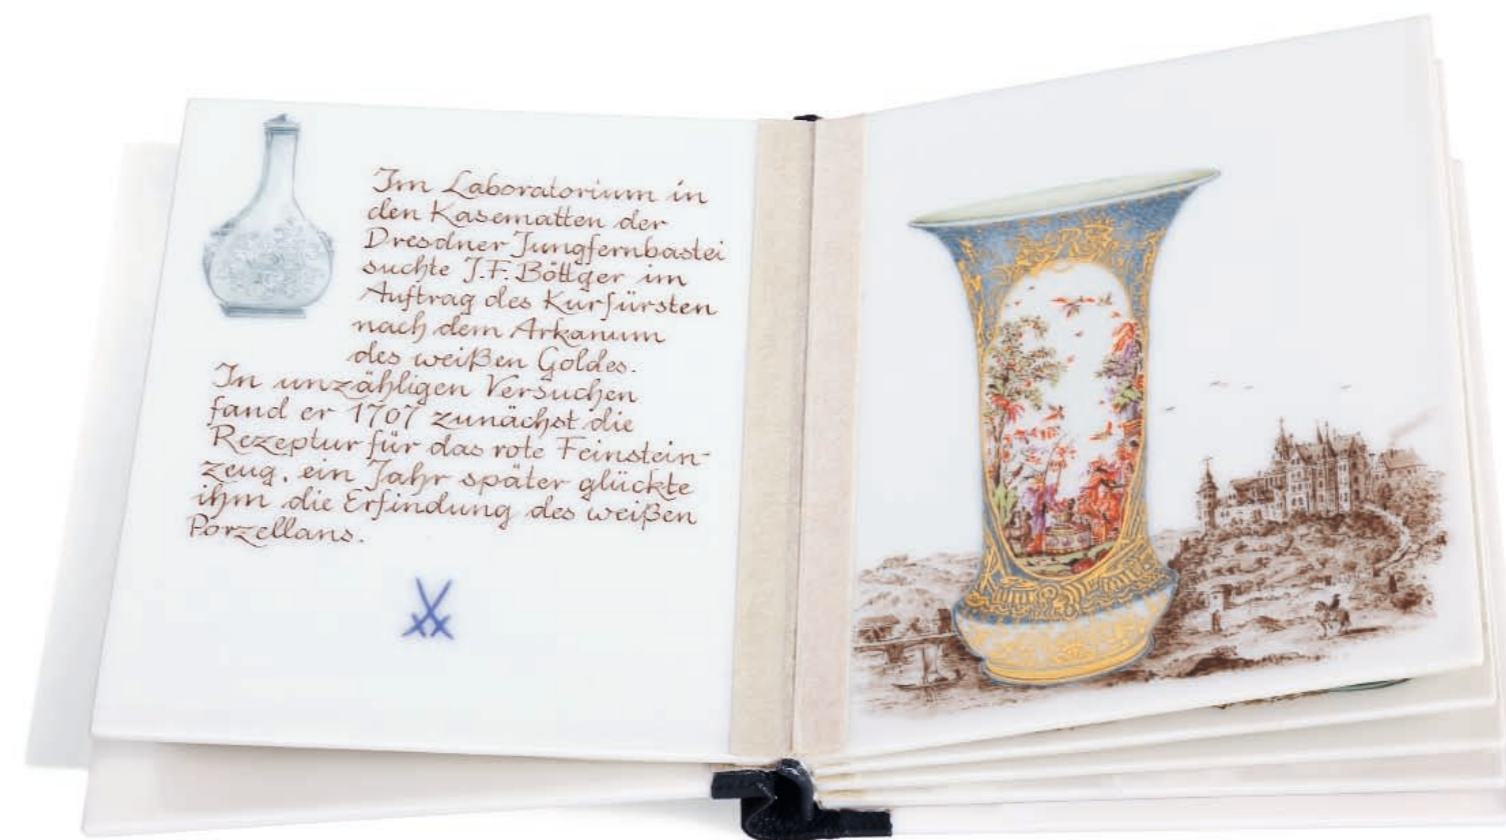 Im Laboratorium in
den Kasematten der
Dresdner Jungfernbastei
suchte J.F. Böttger im
Auftrag des Kurfürsten
nach dem Arkanum
des weißen Goldes.
In unzähligen Versuchen
fand er 1707 zunächst die
Rezeptur für das rote Feinstein-
zeug, ein Jahr später glückte
ihm die Erfindung des weißen
Porzellans.